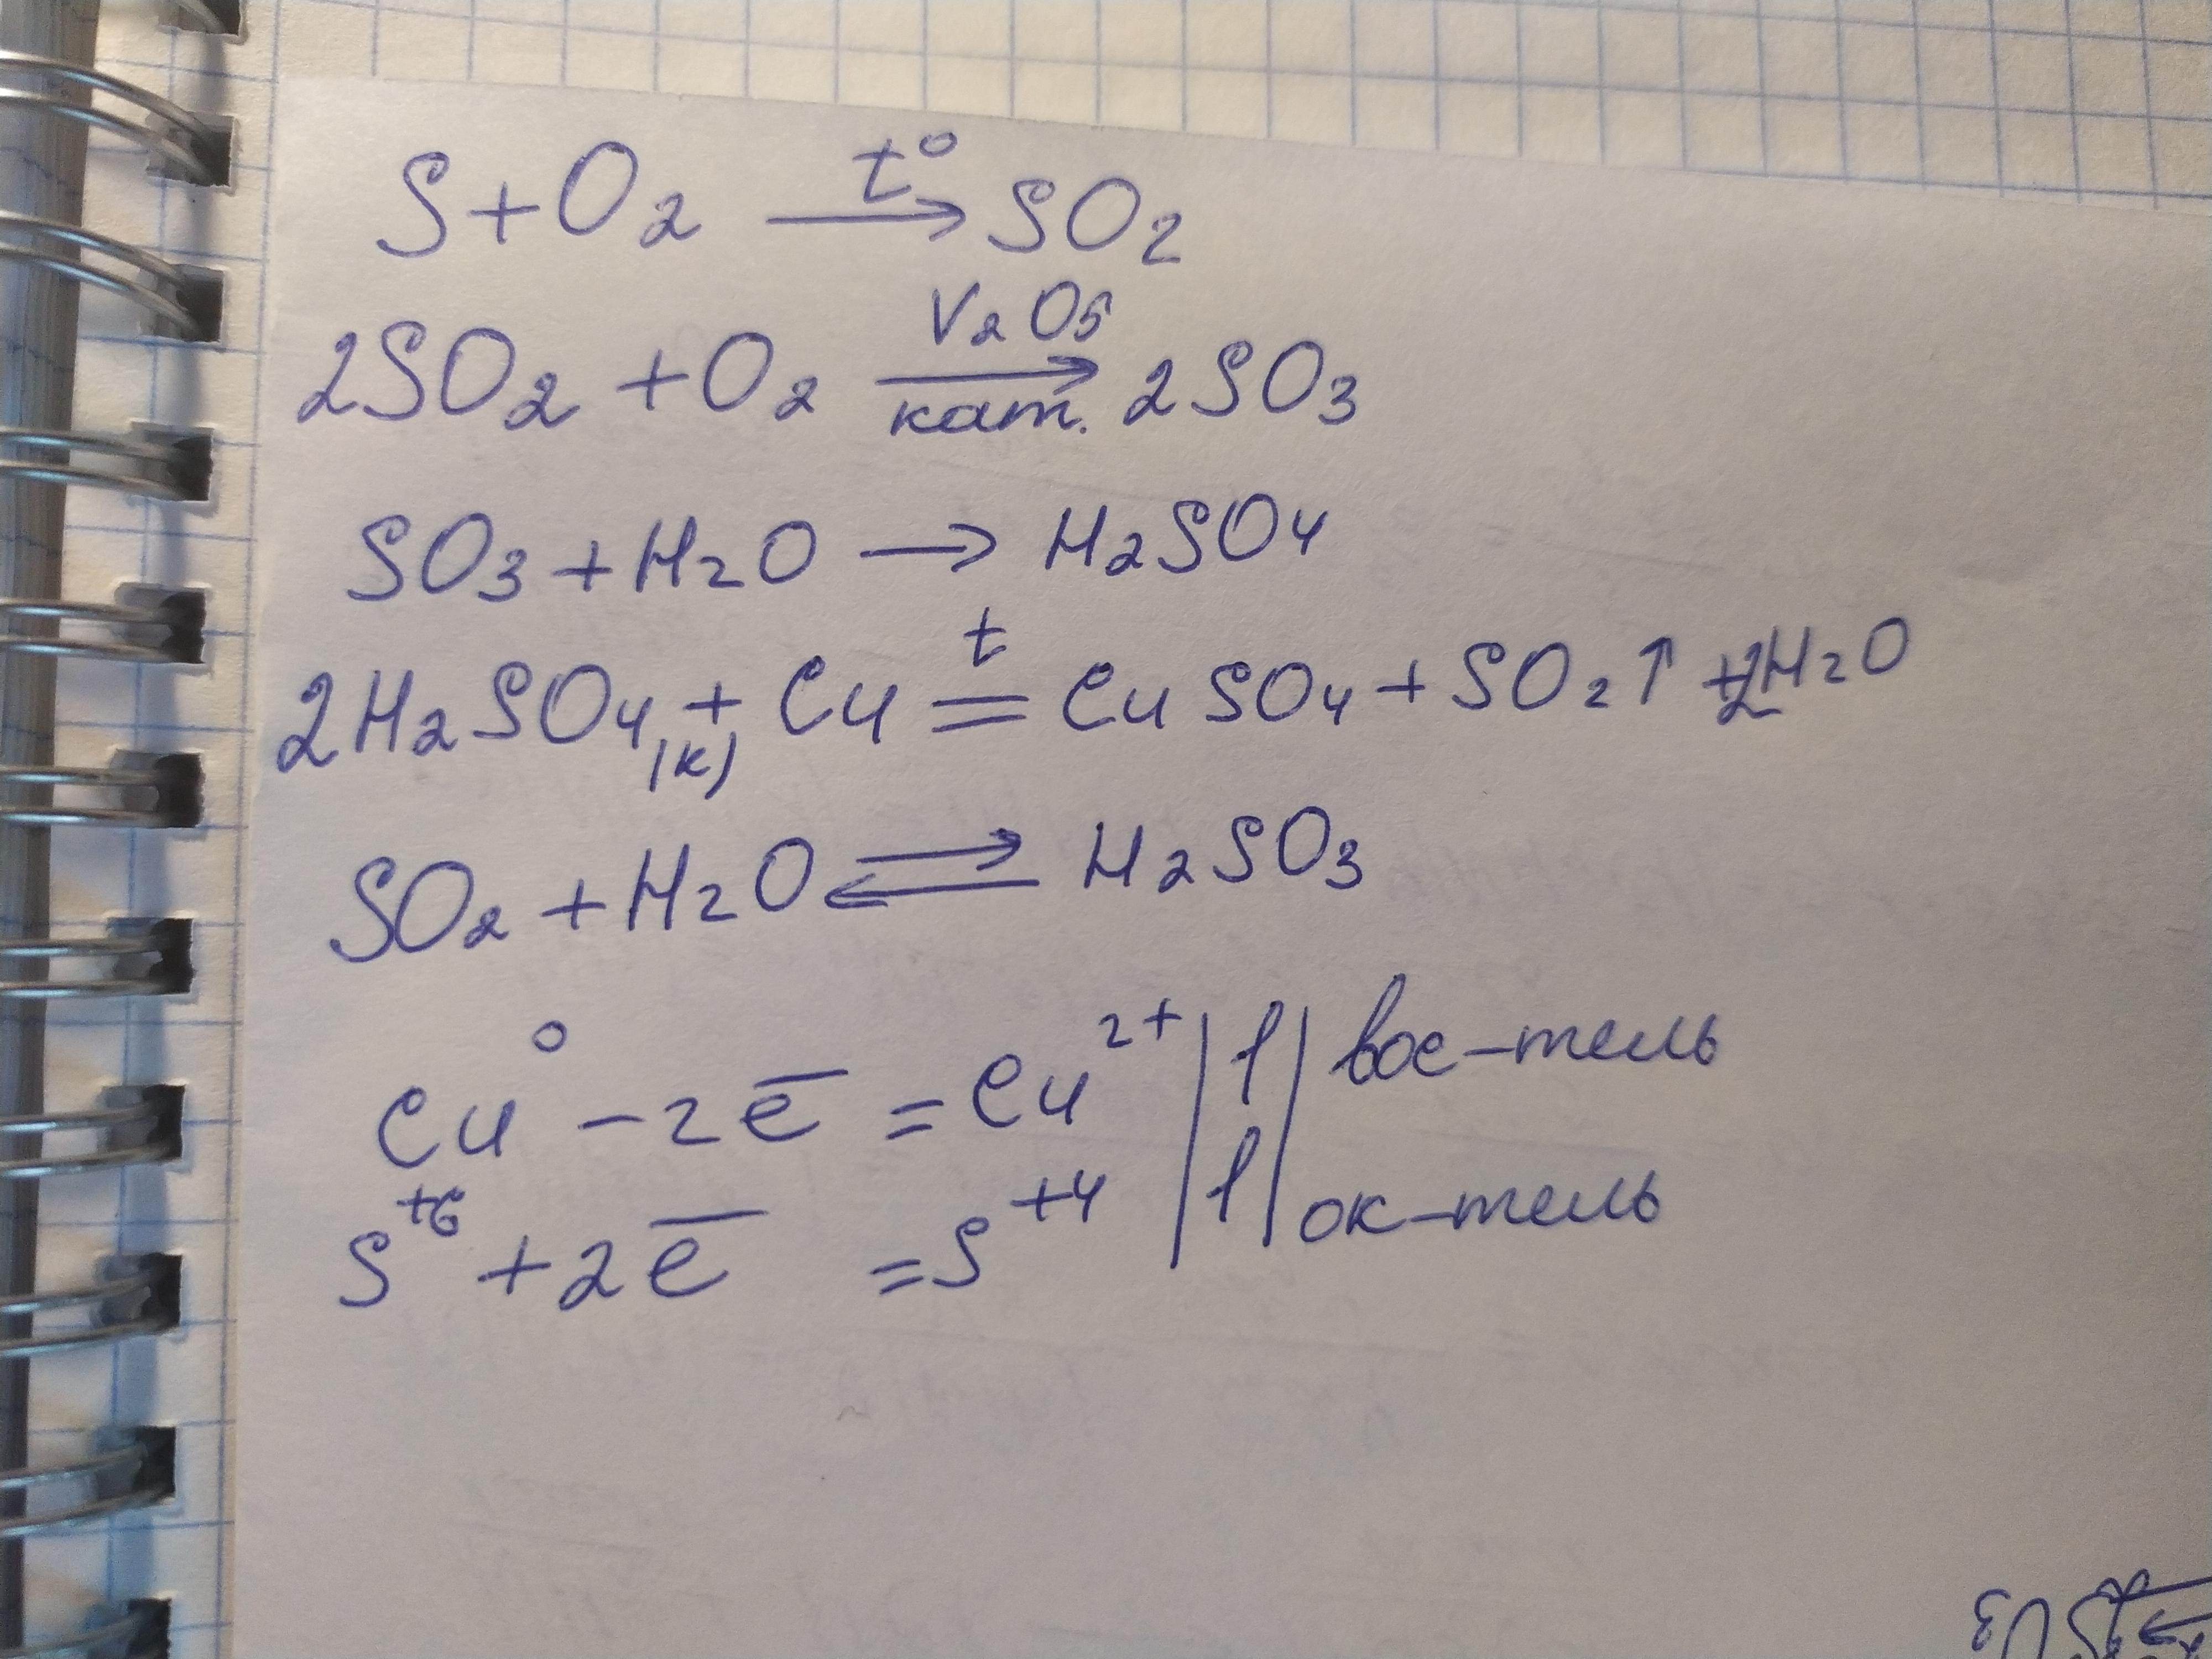 S + O₂ →(t°) SO₂
2SO₂ + O₂ →(V₂O₅, кат.) 2SO₃
SO₃ + H₂O → H₂SO₄
2H₂SO₄(к) + Cu =(t) CuSO₄ + SO₂↑ + 2H₂O
SO₂ + H₂O ⇄ H₂SO₃
Cu⁰ − 2e̅ = Cu²⁺ | 1 | вос-тель
S⁺⁶ + 2e̅ = S⁺⁴ | 1 | ок-тель